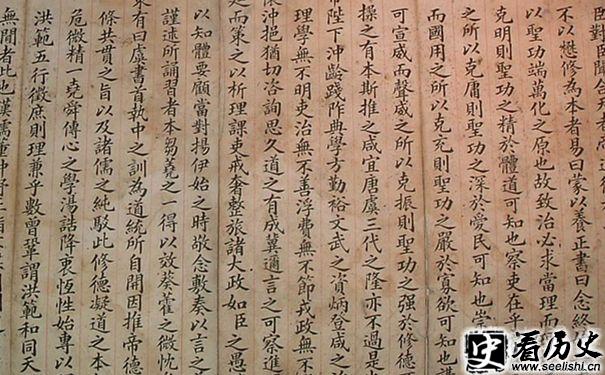 臣對臣聞
不以懋修為本者易曰蒙以養正書曰念終
以聖功端萬化之原也故致治必求當理而
克明則聖功之精於體道可知也察吏在乎
之對所以克庸則聖功之深於愛民可知也崇
而國用之所以克充則聖功之嚴於寡欲可知也講
可宣威而聲威之所以克振則聖功之强於修德
操之有本斯推之咸宜唐虞三代之隆亦不過是
帝陛下沖齡踐阼典學方勤裕文武之資炳登咸之
理學無不明吏治無不善浮費無不節戎政無不
懷沖挹猶切咨詢思久道之有成冀邇言之可察進
而策之以析理課吏戒奢整旅諸大政如臣之愚
以知體要顧當對揚伊始之時敬念敷奏以言之
謹述所誦習者本芻蕘之一得以放葵藿之微忱
來有曰虞書首執中之訓為道統所自開因推帝德
條共貫之旨以及諸儒之純駁此修德凝道之本
危微精一堯舜傳心之學湯誥降衷恆性始專以
洪範五行徵庶則理兼乎數曾鞏謂洪範和同天
無間者此也漢儒董仲舒三
史 看历史
www.seelishi.cn